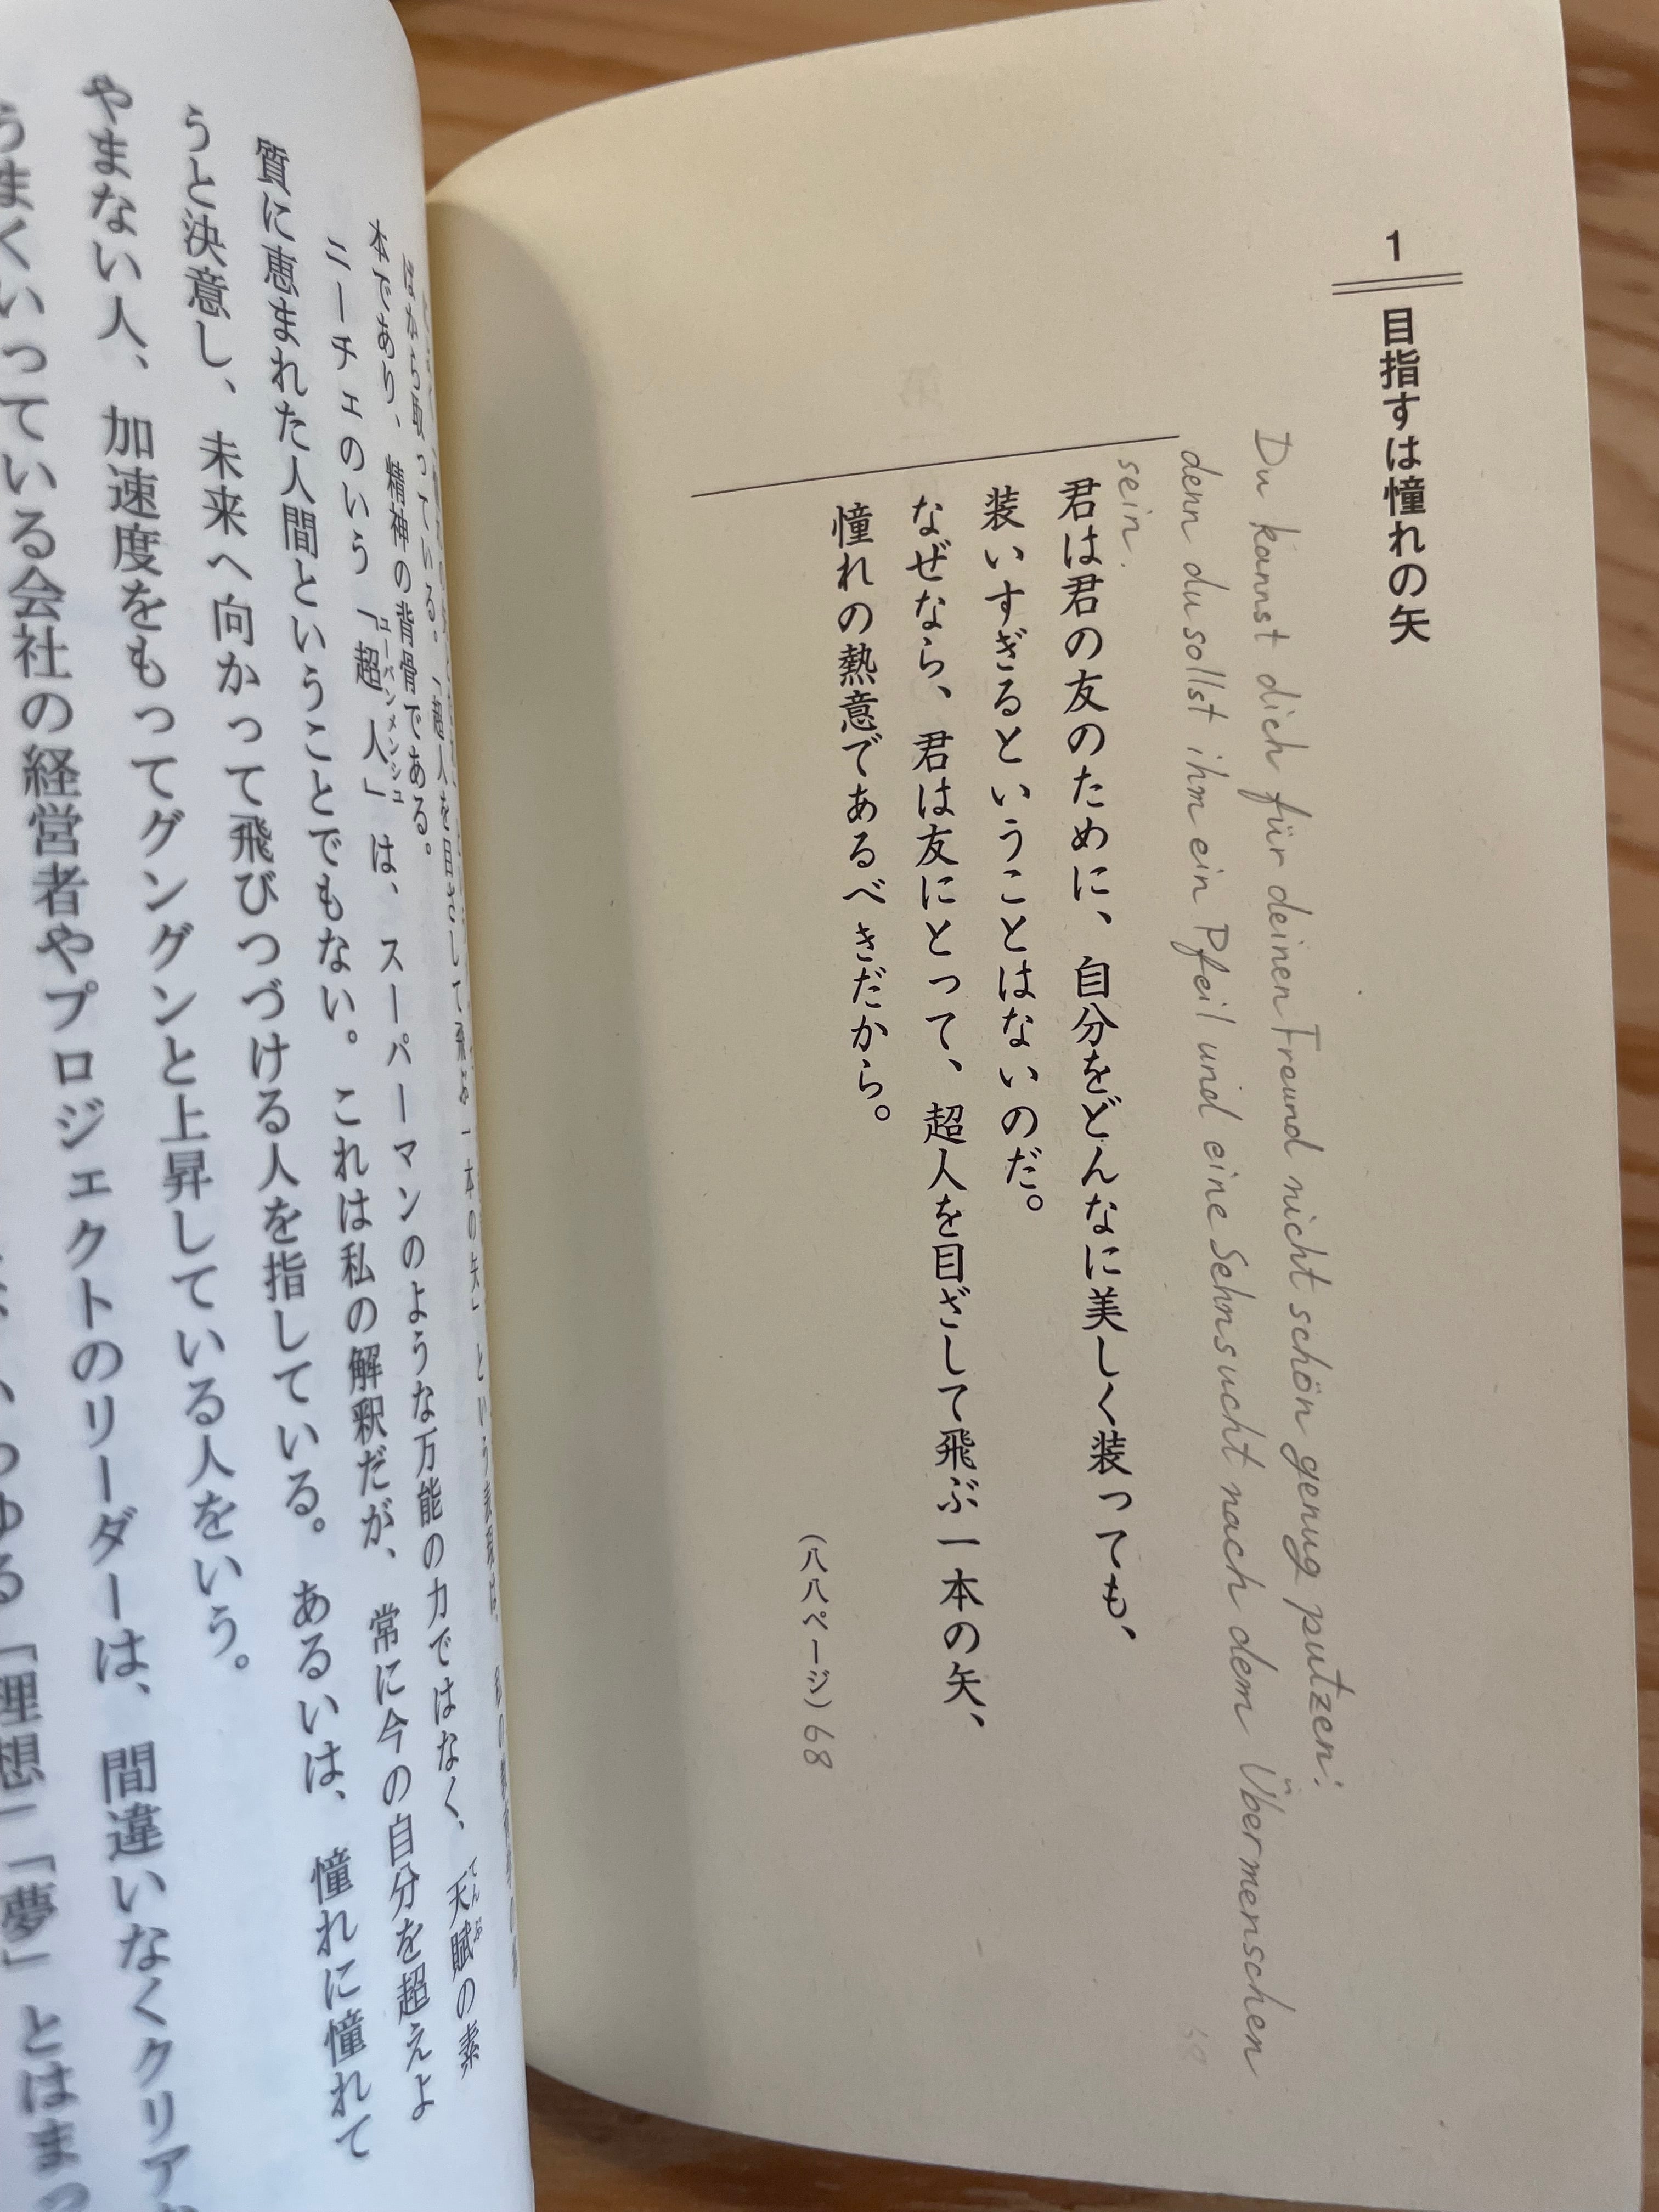 1 目指すは憧れの矢
Du kannst dich für deinen Freund nicht schön genug putzen:
denn du sollst ihm ein Pfeil und eine Sehnsucht nach dem Übermenschen
sein.
君は君の友のために、自分をどんなに美しく装っても、
装いすぎるということはないのだ。
なぜなら、君は友にとって、超人を目ざして飛ぶ一本の矢、
憧れの熱意であるべきだから。
(八八ページ) 68
本であり、精神の背骨である。
ニーチェのいう「超人」は、スーパーマンのような万能の力ではなく、天賦の素
ユーバンメンシュ
てんぷ
質に恵まれた人間ということでもない。これは私の解釈だが、常に今の自分を超えよ
うと決意し、未来へ向かって飛びつづける人を指している。あるいは、憧れに憧れて
やまない人、加速度をもってグングンと上昇している人をいう。
うまくいっている会社の経営者やプロジェクトのリーダーは、間違いなくクリア
「理想」「夢」とはまっ